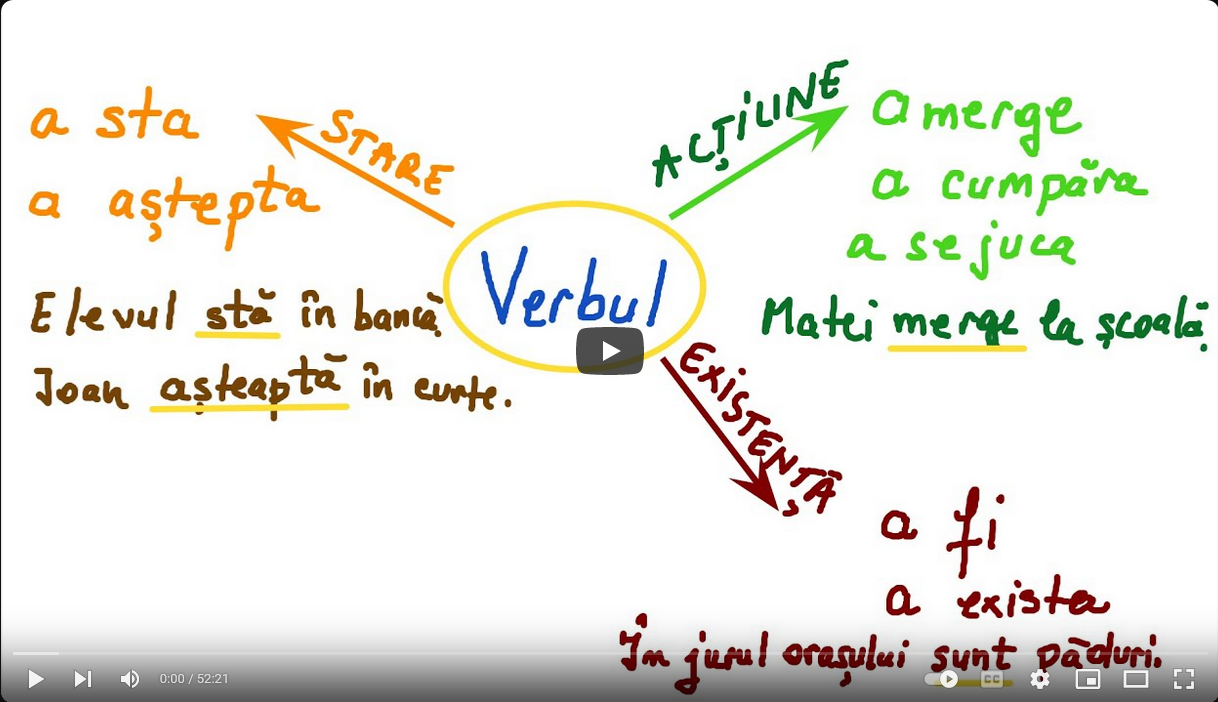 STARE
a sta
a aștepta
Elevul stă în bancă.
Ioan așteaptă în curte.
Verbul
ACȚIUNE
a merge
a cumpăra
a se juca
Matei merge la școală.
EXISTENȚĂ
a fi
a exista
În jurul orașului sunt păduri.
0:00 / 52:21
CC